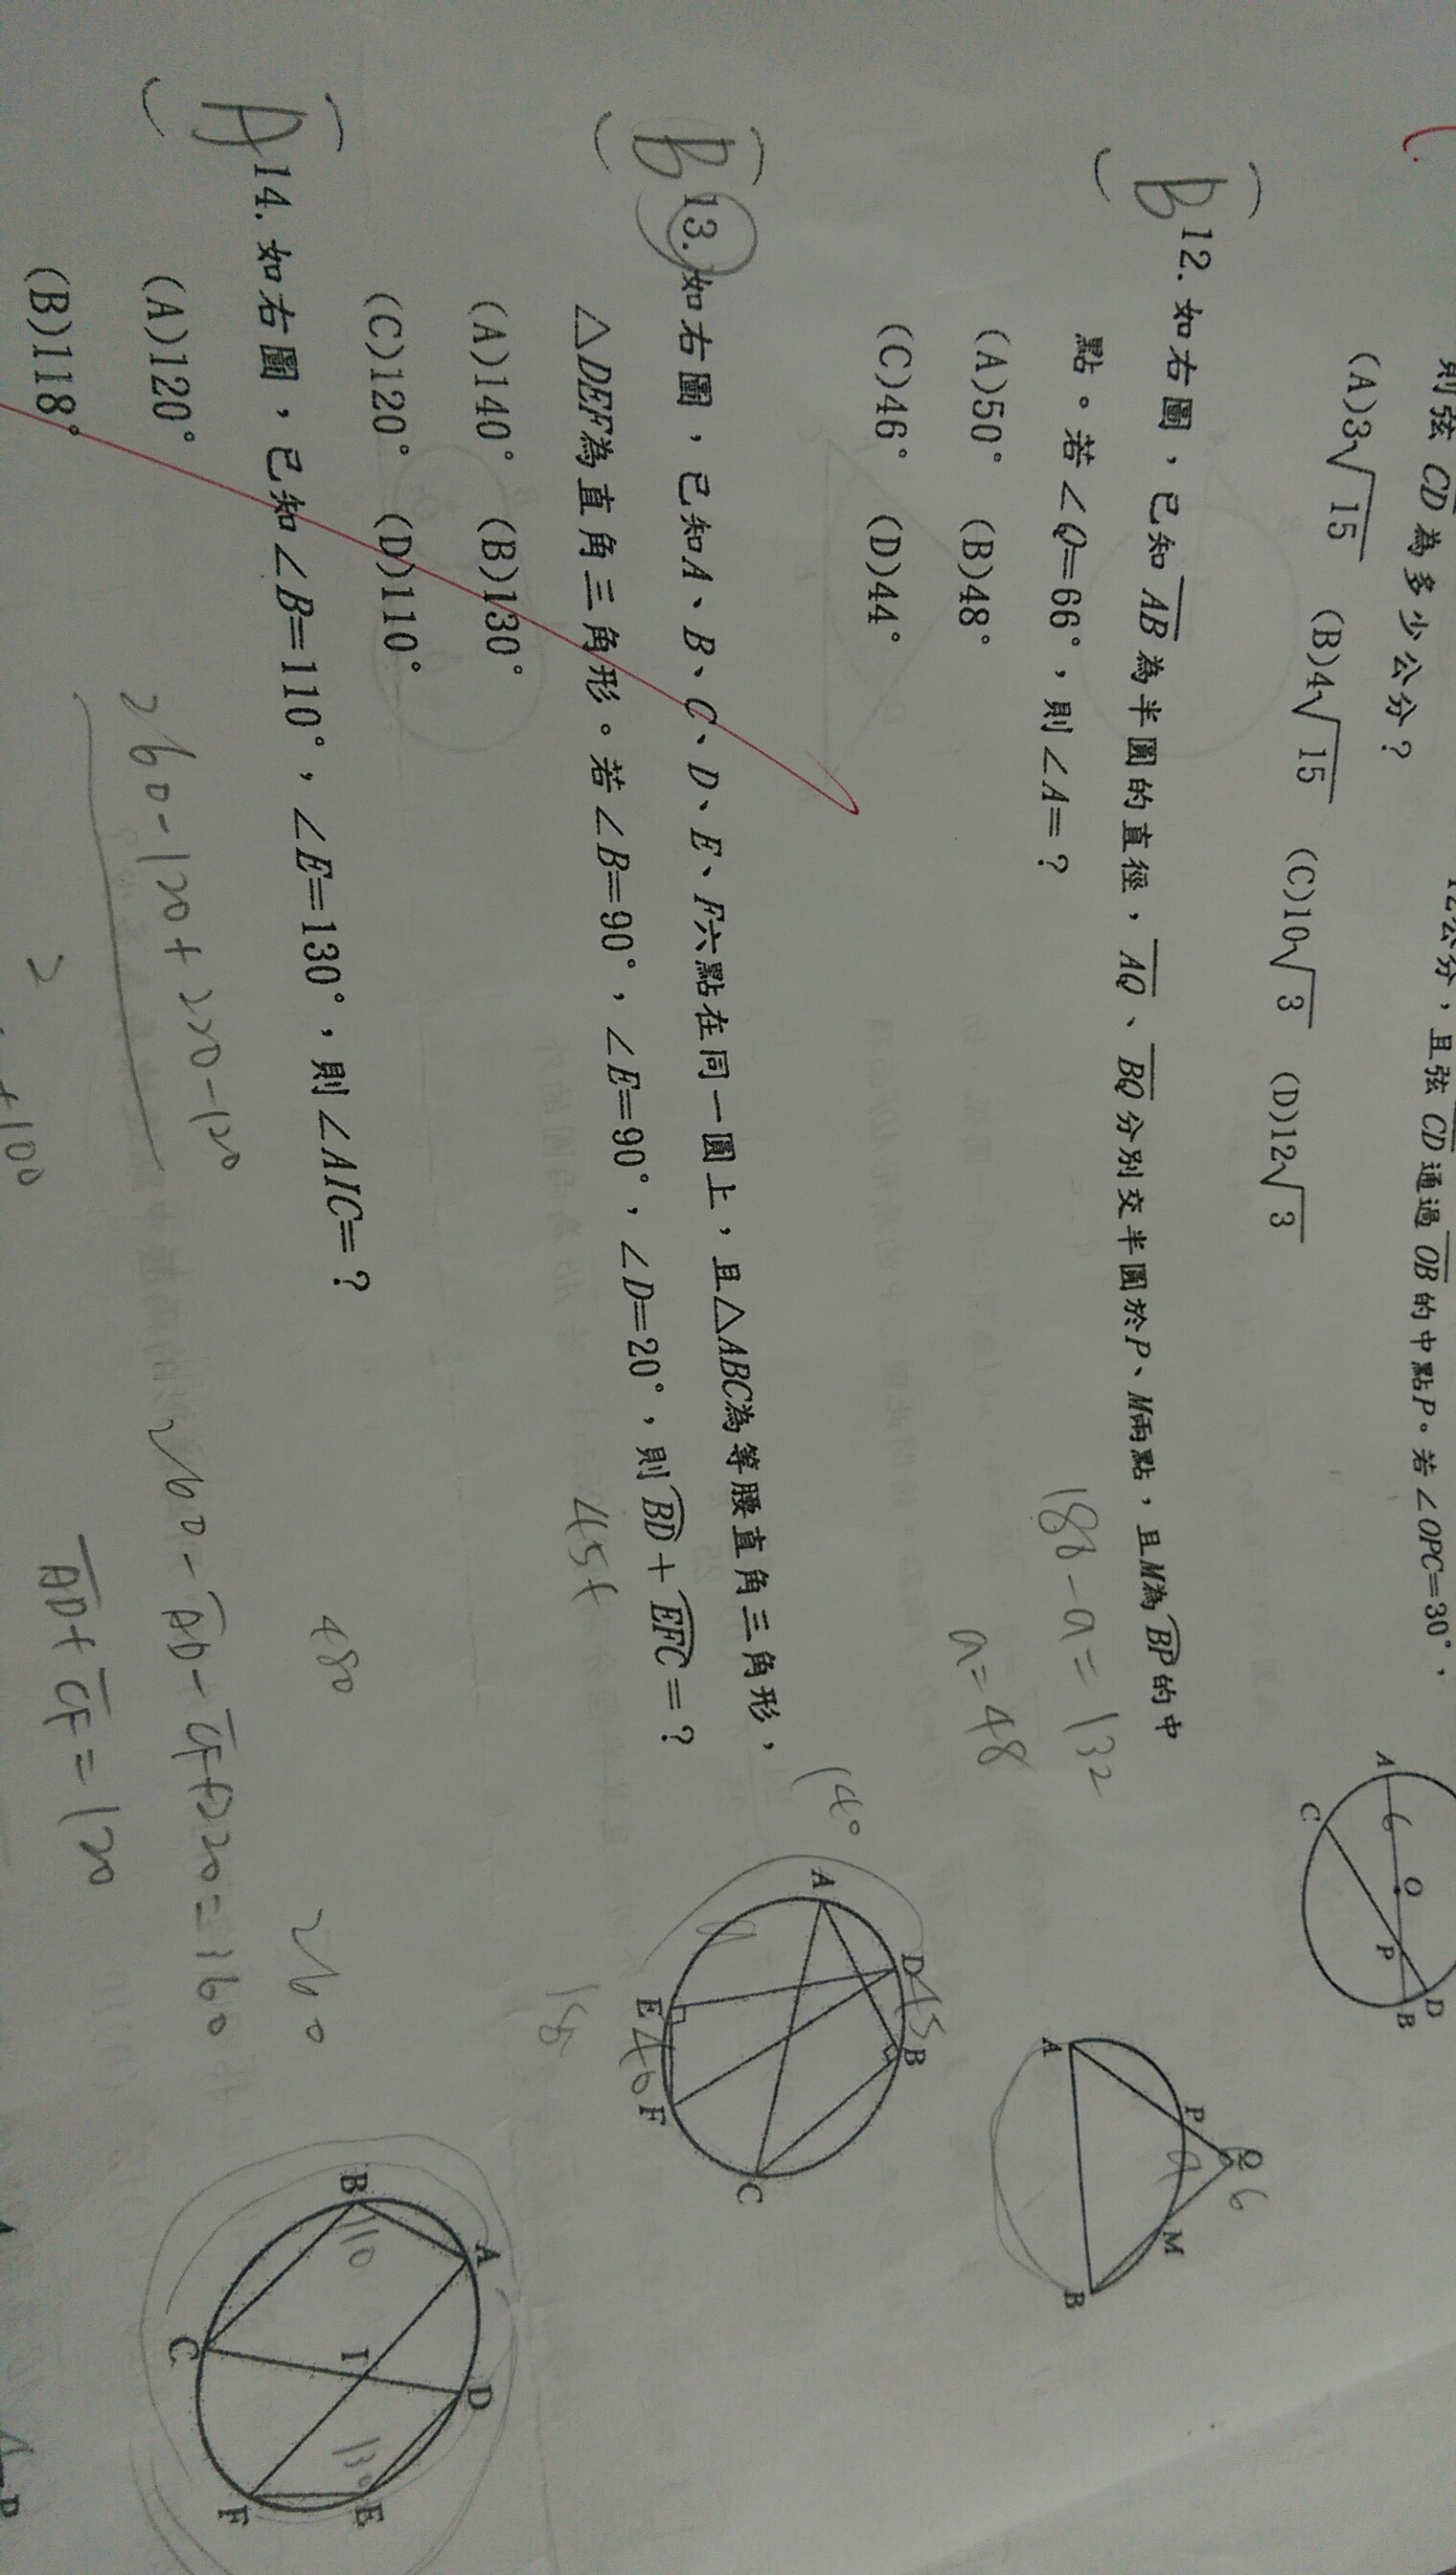 12公分，且弦CD通過OB的中點P。若∠OPC=30°，
則弦CD為多少公分？
(A)3√15 (B)4√15 (C)10√3 (D)12√3
A 6 O P D B C
B 12. 如右圖，已知AB為半圓的直徑，AQ、BQ分別交半圓於P、M兩點，且M為BP的中
點。若∠Q=66°，則∠A=？
(A)50° (B)48°
(C)46° (D)44°
188-a=132
a=48
A P Q M B
B 13. 如右圖，已知A、B、C、D、E、F六點在同一圓上，且△ABC為等腰直角三角形，
△DEF為直角三角形。若∠B=90°，∠E=90°，∠D=20°，則BD+EFC=？
(A)140° (B)130°
(C)120° (D)110°
45+
140
A D 45 B E 40 F C
A 14. 如右圖，已知∠B=110°，∠E=130°，則∠AIC=？
(A)120°
(B)118°
260-120+220-120
2
+100
480
260
260-AD-CF+220=160
AD+CF=120
B 110 A C I D 130 F E